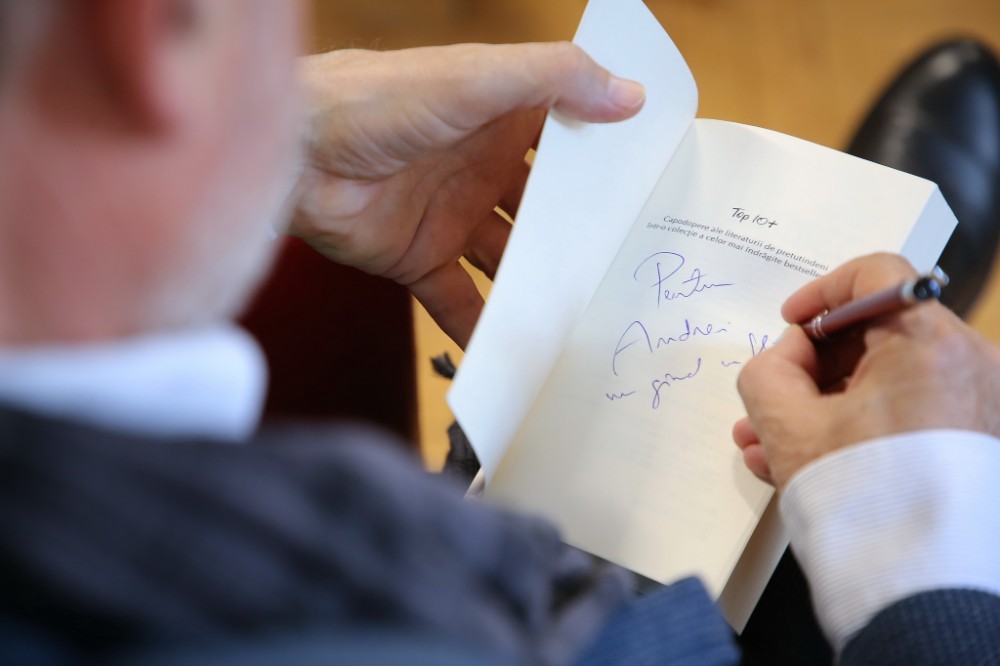 Top 10+
Capodopere ale literaturii de pretutindeni
într-o colecție a celor mai îndrăgite bestselle
Pentru
Andrei
un gînd